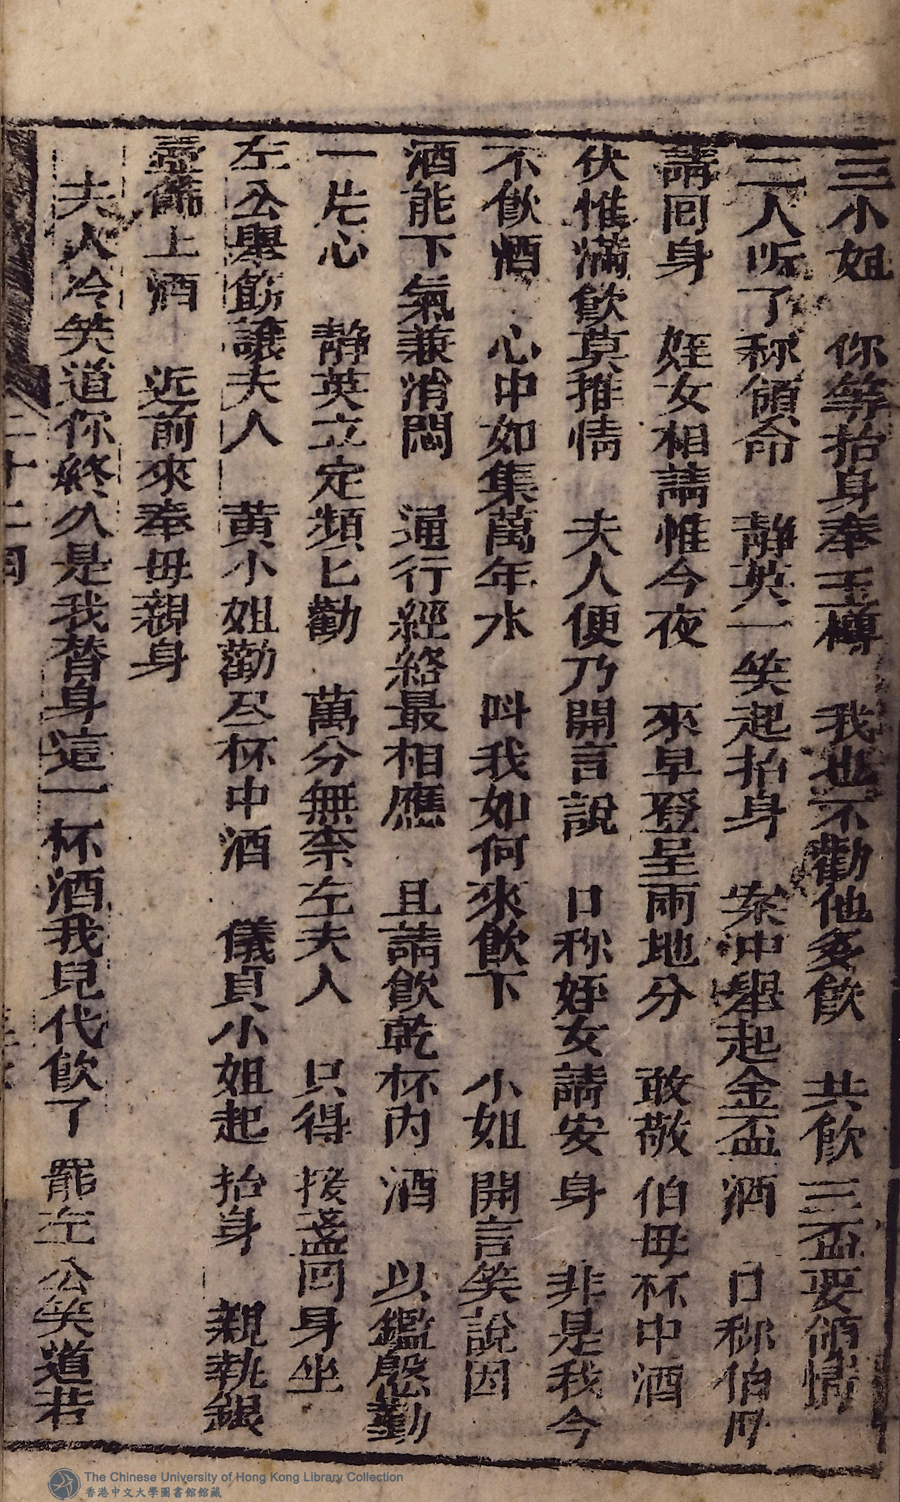 三小姐　你等抬身奉玉樽　我也不勸他多飲　共飲三盃要領情
二人听了称領命　静英一笑起抬身　案中舉起金盃酒　口称伯母
請囘身　姪女相請惟今夜　來早登呈兩地分　敢敬伯母杯中酒
伏惟滿飲莫推情　夫人便乃開言說　口称姪女請安身　非是我今
不飲酒　心中如集萬年水　呌我如何來飲下　小姐開言笑說因
酒能下氣兼消悶　通行經絡最相應　且請飲乾杯內酒　以鑑慇勤
一片心　静英立定頻匕勸　萬分無柰左夫人　只得接盞囘身坐
左公舉筯讓夫人　黄小姐勸尽杯中酒　儀貞小姐起抬身　親執銀
壺篩上酒　近前來奉毋親身
夫人冷笑道你終久是我替身這一杯酒我児代飲了罷左公笑道若
二十二囘
The Chinese University of Hong Kong Library Collection
香港中文大學圖書館館藏